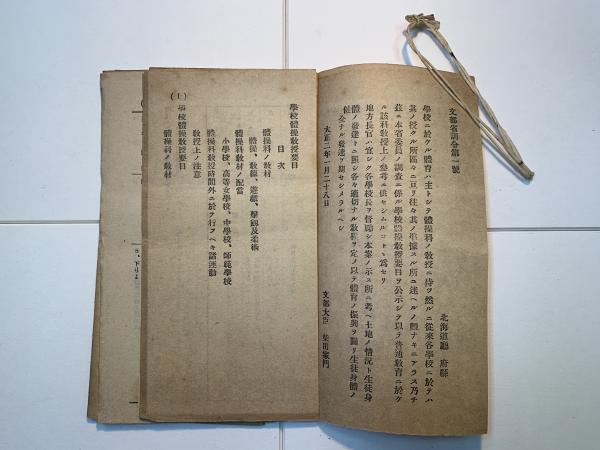 文部省訓令第一號
北海道廳 府縣
學校ニ於ケル體育ハ主トシテ體操科ノ教授ニ待ツ然ルニ從來各學校ニ於テハ
其ノ授クル所區々ニ亘リ往々其ノ準據スル所ニ迷ヘルノ觀ナキニアラス乃チ
茲ニ本省委員ノ調査ニ係ル學校體操教授要目ヲ公示シテ以テ普通教育ニ於ケ
ル該科教授上ノ參考ニ供セシムルコトヽ爲セリ
地方長官ハ宜シク各學校長ヲ督勵シ本案ノ示ス所ニ考ヘ土地ノ情況ト生徒身
體ノ發達トニ照シ各々適切ナル教程ヲ定メ以テ體育ノ振興ヲ圖リ生徒身體ノ
健全ナル發達ヲ期セシメラルヘシ
大正二年一月二十八日
文部大臣 柴田家門
學校體操教授要目
目次
體操科ノ教材
體操、教練、遊戲、擊劍及柔術
體操科教材ノ配當
小學校、高等女學校、中學校、師範學校
體操科教授時間外ニ於テ行フヘキ諸運動
教授上ノ注意
(1) 學校體操教授要目
體操科ノ教材